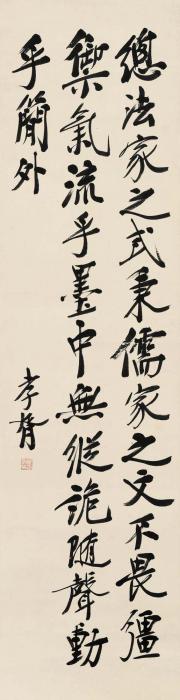 總法家之式秉儒家之文不畏彊
禦氣流乎墨中無縱詭隨聲動
乎簡外
孝胥